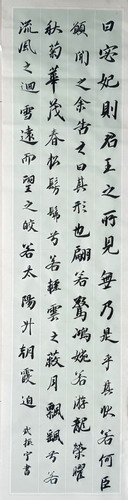 曰宓妃則君王之所見無乃是乎其狀若何臣
願聞之余告之曰其形也翩若驚鴻婉若遊龍榮曜
秋菊華茂春松髣髴兮若輕雲之蔽月飄飄兮若
流風之迴雪遠而望之皎若太陽升朝霞迫
武振宇書